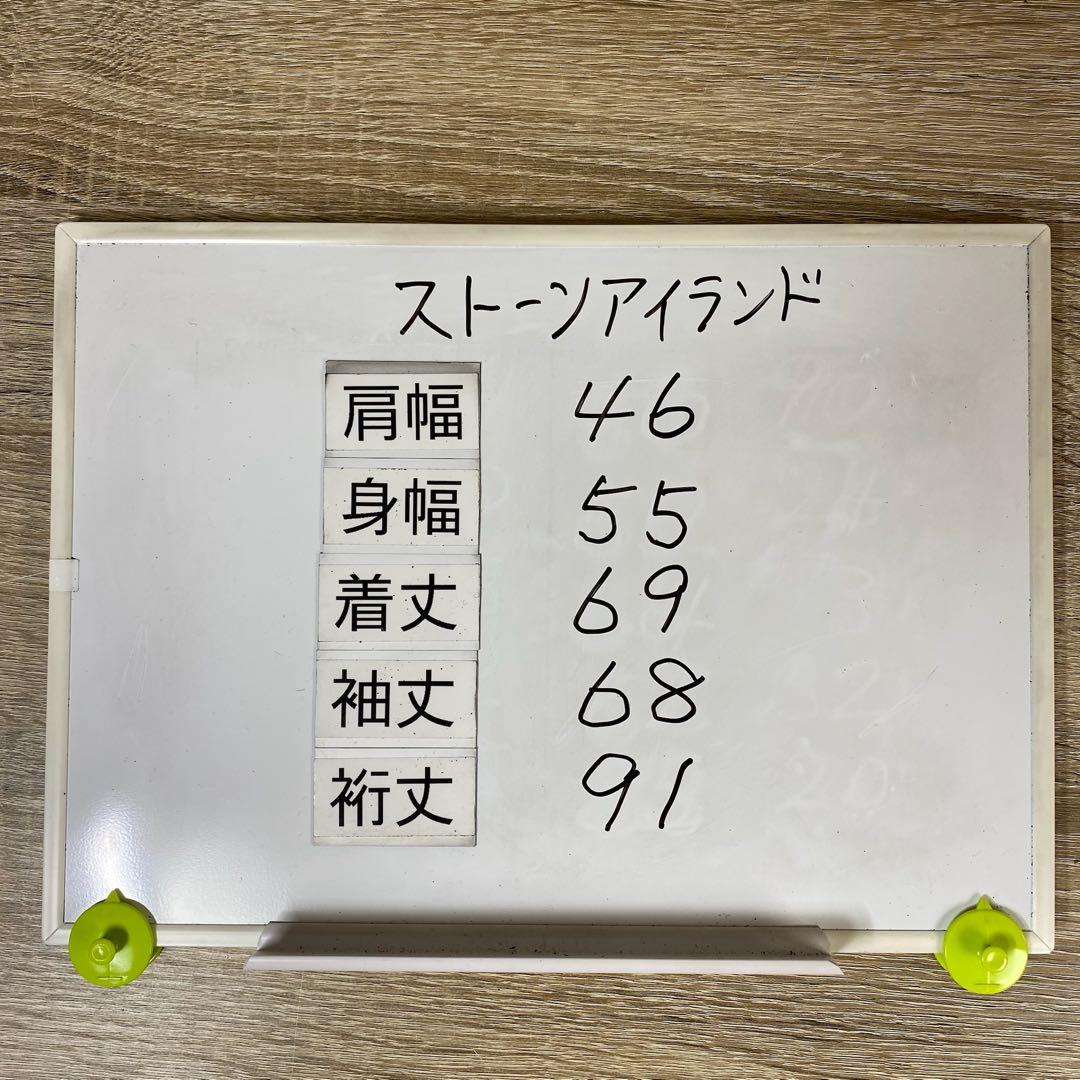 ストーンアイランド
肩幅 46
身幅 55
着丈 69
袖丈 68
裄丈 91